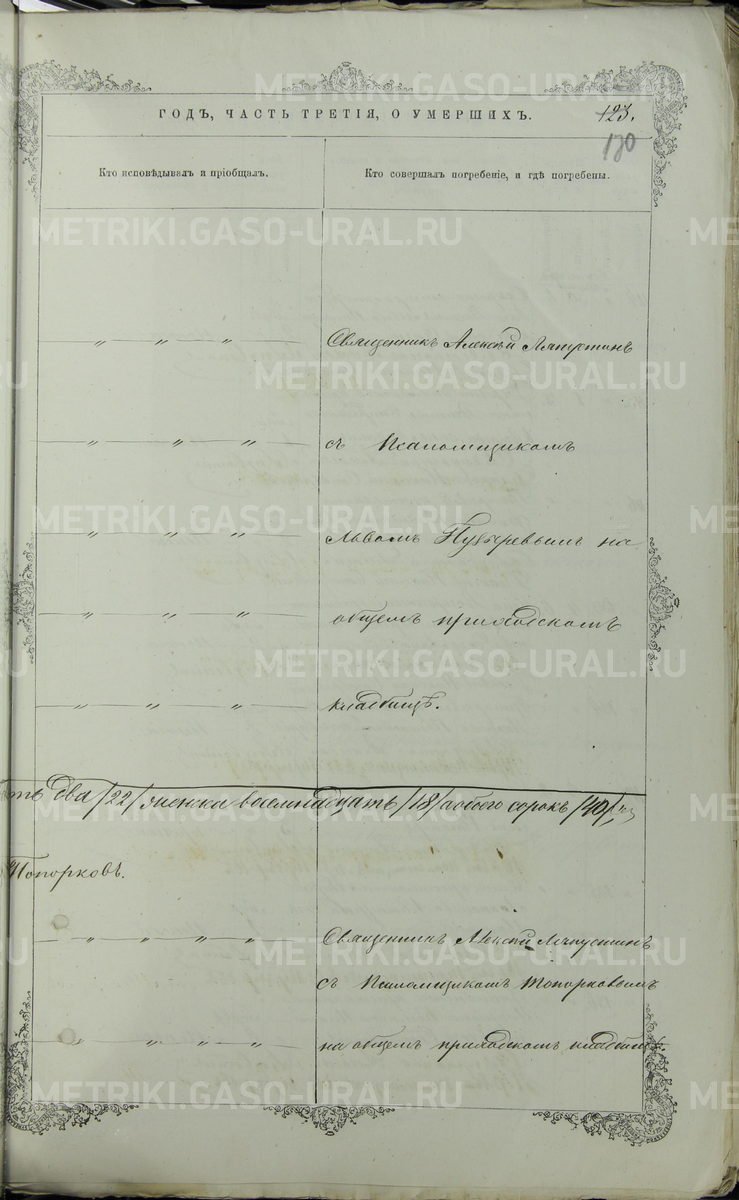 ГОДЪ, ЧАСТЬ ТРЕТІЯ, О УМЕРШИХЪ.
123.
130
Кто исповѣдывалъ и пріобщалъ.
Кто совершалъ погребеніе, и гдѣ погребены.
— „ — „ — „ — Священникъ Алексѣй Ляпустинъ
— „ — „ — „ — съ Псаломщикомъ
— „ — „ — „ — Львомъ на
— „ — „ — „ — общемъ приходскомъ
— „ — „ — „ — кладбищѣ.
два /22/ женска восемнадцать /18/ обоего сорокъ /40/
Топорковъ.
— „ — „ — „ — „ — Священникъ Алексѣй Ляпустинъ
съ Псаломщикомъ Топорковымъ
— „ — „ — „ — „ — на общемъ приходскомъ кладбищѣ.
METRIKI.GASO-URAL.RU